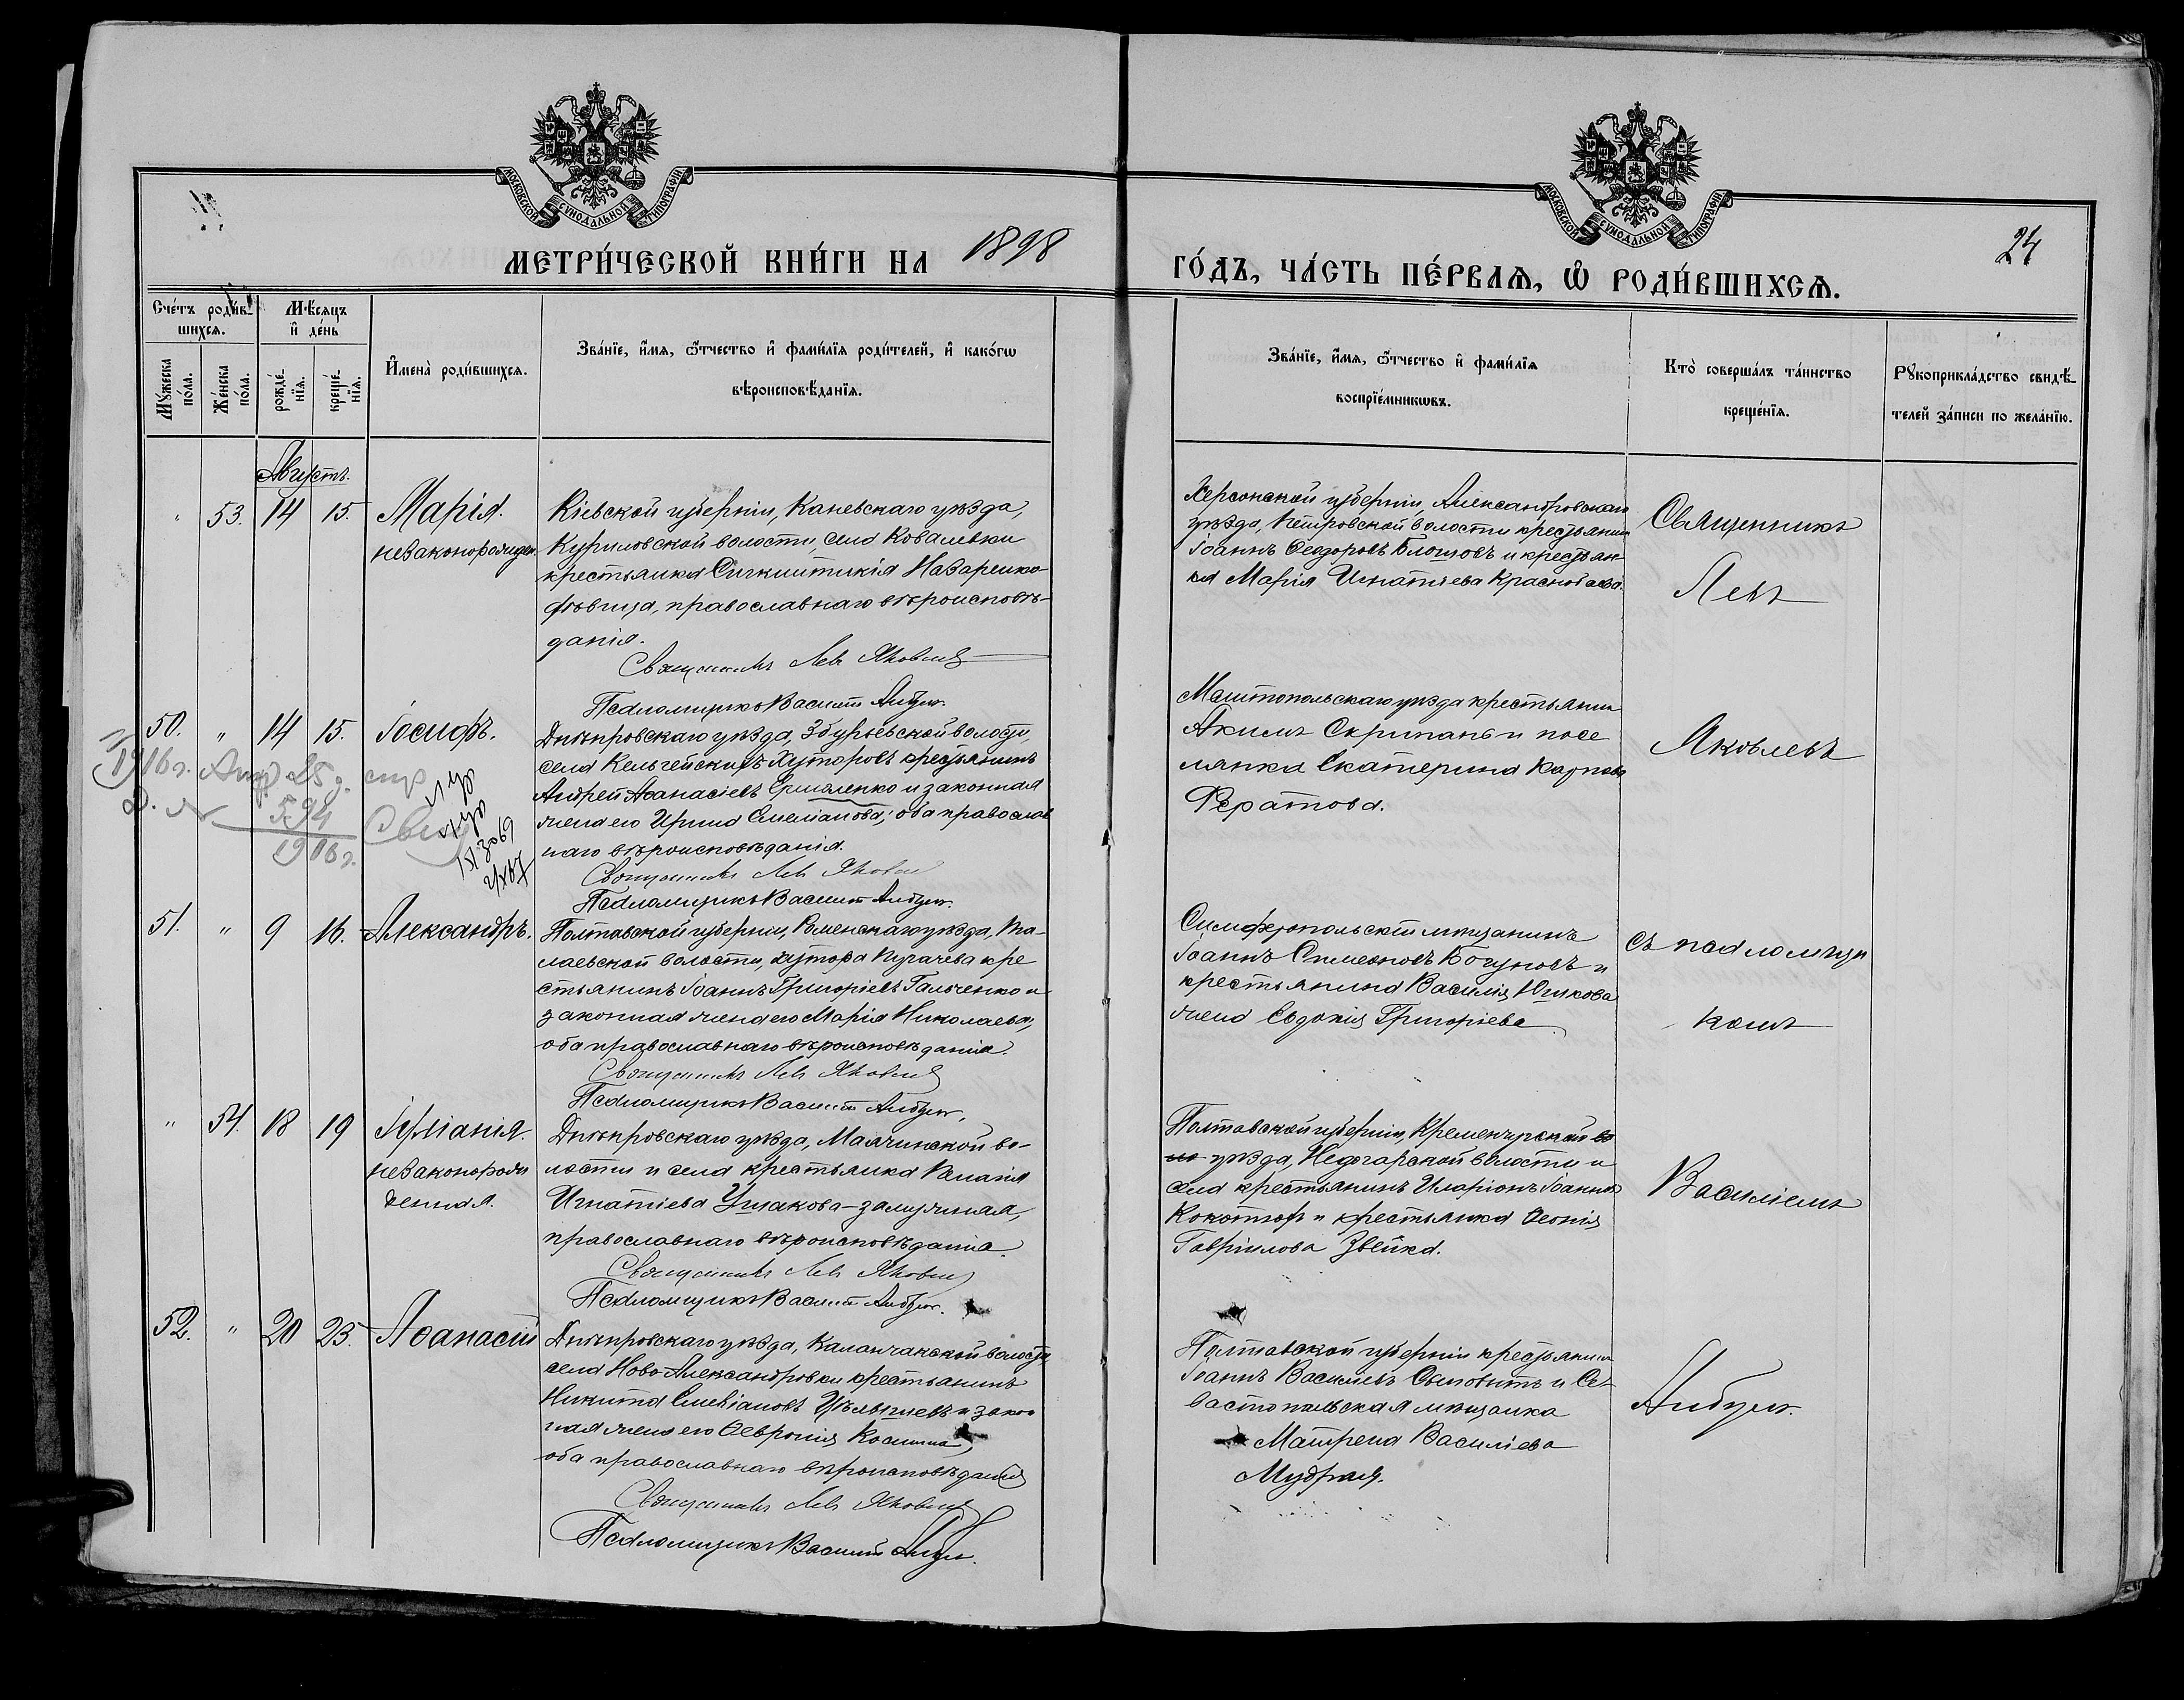 МОСКОВСКОЙ СѴНОДАЛЬНОЙ ТИПОГРАФІИ
МОСКОВСКОЙ СѴНОДАЛЬНОЙ ТИПОГРАФІИ
МЕТРИ́ЧЕСКОЙ КНИ́ГИ НА 1898
ГО́ДЪ, ЧА́СТЬ ПЕ́РВАѦ, Ѡ РОДИ́ВШИХСѦ.
24
Сче́тъ роди́в-
шихсѧ.
Мѣ́сѧцъ
и҆ де́нь
Мꙋ́жеска
по́ла.
Же́нска
по́ла.
рожде́-
нїѧ.
креще́-
нїѧ.
И҆мена̀ роди́вшихсѧ.
Зва́нїе, и҆́мѧ, ѻ҆́тчество и҆ фами́лїѧ роди́телей, и҆ како́гѡ
вѣроисповѣ́данїѧ.
Зва́нїе, и҆́мѧ, ѻ҆́тчество и҆ фами́лїѧ
воспрїе́мникѡвъ.
Кто̀ соверша́лъ та́инство
креще́нїѧ.
Рꙋкоприкла́дство свидѣ́-
телей за́писи по жела́нїю.
Августъ.
" 53. 14 15. Марія.
незаконорожден.
Кіевской губерніи, Каневскаго уѣзда,
Куриловской волости, села Ковалевки
крестьянка Назаренко-
дѣвица, православнаго вѣроисповѣ-
данія.
Священникъ Левъ Яковлевъ
Псаломщикъ Василій
Херсонской губерніи, Александровскаго
уѣзда, Петровской волости крестьянинъ
Іоаннъ Ѳеодоровъ и крестьян-
ка Марія Игнатьева
Священникъ
Левъ
50. " 14 15. Іосифъ.
1916г. Апр 25 д.
594
1916 г.
Днѣпровскаго уѣзда, Збурьевской волости,
села Кельгейскихъ Хуторовъ крестьянинъ
Андрей Аѳанасіевъ Ермоленко и законная
жена его Ирина Емеліанова; оба православ
наго вѣроисповѣданія.
Священникъ Левъ Яковлевъ
Псаломщикъ Василій
Мелитопольскаго уѣзда крестьянинъ
Акимъ Скрипань и посе
лянка Екатерина Карпова
Фератова.
Яковлевъ
51. " 9 16. Александръ.
Полтавской губерніи, Роменскаго уѣзда,
лаевской волости, хутора Пугачева кре
стьянинъ Іоаннъ Григоріевъ Гальченко и
законная жена его Марія Николаева,
оба православнаго вѣроисповѣданія.
Священникъ Левъ Яковлевъ
Псаломщикъ Василій
Симферопольскій мѣщанинъ
Іоаннъ Симеоновъ Богуновъ и
крестьянина Василія
жена Евдокія Григоріева
съ псаломщи
комъ
" 54. 18 19
незаконорож
денная.
Днѣпровскаго уѣзда, Маячинской во-
лости и села крестьянка
Игнатіева Ушакова-замужняя,
православнаго вѣроисповѣданія.
Священникъ Левъ Яковлевъ
Псаломщикъ Василій
Полтавской губерніи, Кременчугской во
уѣзда, Недогарской волости и
села крестьянинъ Иларіонъ Іоанновъ
и крестьянка
Гавріилова
Василіемъ
52. " 20 23. Аѳанасій
Днѣпровскаго уѣзда, Каланчакской волости
села Ново-Александровки крестьянинъ
Никита Емеліановъ и закон
ная жена его Ѳевронія Космина,
оба православнаго вѣроисповѣданія
Священникъ Левъ Яковлевъ
Псаломщикъ Василій
Полтавской губерніи крестьянинъ
Іоаннъ Василіевъ и Се-
вастопольская мѣщанка
Матрена Василіева
Мудрая.